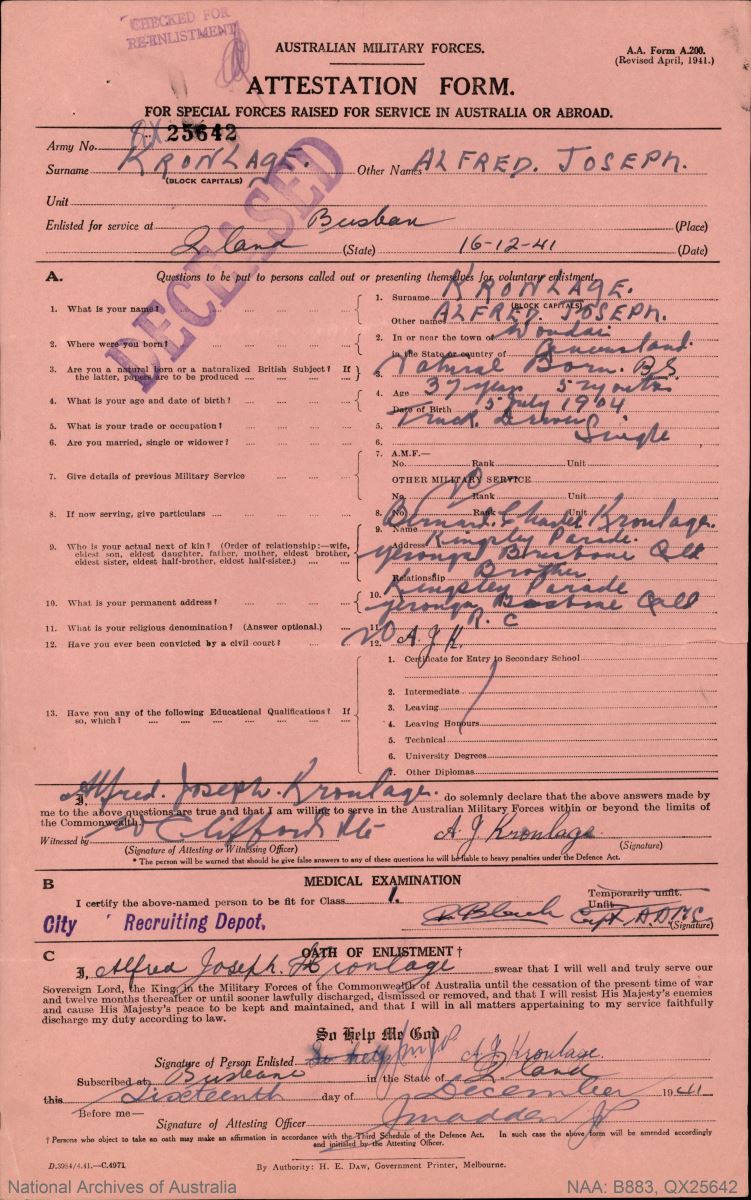 CHECKED FOR
RE-ENLISTMENT
AUSTRALIAN MILITARY FORCES.
A.A. Form A.200.
(Revised April, 1941.)
ATTESTATION FORM.
FOR SPECIAL FORCES RAISED FOR SERVICE IN AUSTRALIA OR ABROAD.
Army No. QX 25642
Surname KRONLAGE. Other Names ALFRED. JOSEPH.
(BLOCK CAPITALS)
Unit
Enlisted for service at Brisbane (Place)
Qland (State) 16-12-41 (Date)
DECEASED
A. Questions to be put to persons called out or presenting themselves for voluntary enlistment.
1. What is your name? 1. Surname KRONLAGE.
(BLOCK CAPITALS)
Other names ALFRED. JOSEPH.
2. Where were you born? 2. In or near the town of Wondai
in the State or country of Queensland.
3. Are you a natural born or a naturalized British Subject? If the latter, papers are to be produced 3. Natural Born. B.S.
4. What is your age and date of birth? 4. Age 37 years 5 months
Date of Birth 5 July 1904
5. What is your trade or occupation? 5. Truck Driver
6. Are you married, single or widower? 6. Single
7. Give details of previous Military Service 7. A.M.F.—
No. Rank Unit
OTHER MILITARY SERVICE
No
No. Rank Unit
8. If now serving, give particulars 8. No. Rank Unit
9. Who is your actual next of kin? (Order of relationship:—wife, eldest son, eldest daughter, father, mother, eldest brother, eldest sister, eldest half-brother, eldest half-sister.) 9. Name Bernard. Charles Kronlage.
Address Kingsley Parade.
Yeronga Brisbane Qld
Relationship Brother
10. What is your permanent address? 10. Kingsley Parade
Yeronga Brisbane Qld
11. What is your religious denomination? (Answer optional.) 11. R. C
12. Have you ever been convicted by a civil court? 12. No A.J.K.
13. Have you any of the following Educational Qualifications? If so, which?
1. Certificate for Entry to Secondary School
2. Intermediate
3. Leaving
4. Leaving Honours
5. Technical
6. University Degrees
7. Other Diplomas
I, Alfred. Joseph. Kronlage. do solemnly declare that the above answers made by
me to the above questions are true and that I am willing to serve in the Australian Military Forces within or beyond the limits of
the Commonwealth.
Witnessed by Clifford A J Kronlage
(Signature of Attesting or Witnessing Officer) (Signature)
* The person will be warned that should he give false answers to any of these questions he will be liable to heavy penalties under the Defence Act.
B MEDICAL EXAMINATION
I certify the above-named person to be fit for Class 1.
Temporarily unfit.
Unfit
City Recruiting Depot,
Capt. (Signature)
C OATH OF ENLISTMENT †
I, Alfred Joseph. Kronlage swear that I will well and truly serve our
Sovereign Lord, the King, in the Military Forces of the Commonwealth of Australia until the cessation of the present time of war
and twelve months thereafter or until sooner lawfully discharged, dismissed or removed, and that I will resist His Majesty's enemies
and cause His Majesty's peace to be kept and maintained, and that I will in all matters appertaining to my service faithfully
discharge my duty according to law.
So Help Me God
Signature of Person Enlisted So help A J Kronlage.
Subscribed at Brisbane in the State of Qland
this Sixteenth day of December 1941
Before me—
Signature of Attesting Officer J Madden JP
† Persons who object to take an oath may make an affirmation in accordance with the Third Schedule of the Defence Act. In such case the above form will be amended accordingly
and initialed by the Attesting Officer.
D.3984/4.41.—C.4971.
By Authority: H. E. Daw, Government Printer, Melbourne.
National Archives of Australia
NAA: B883, QX25642